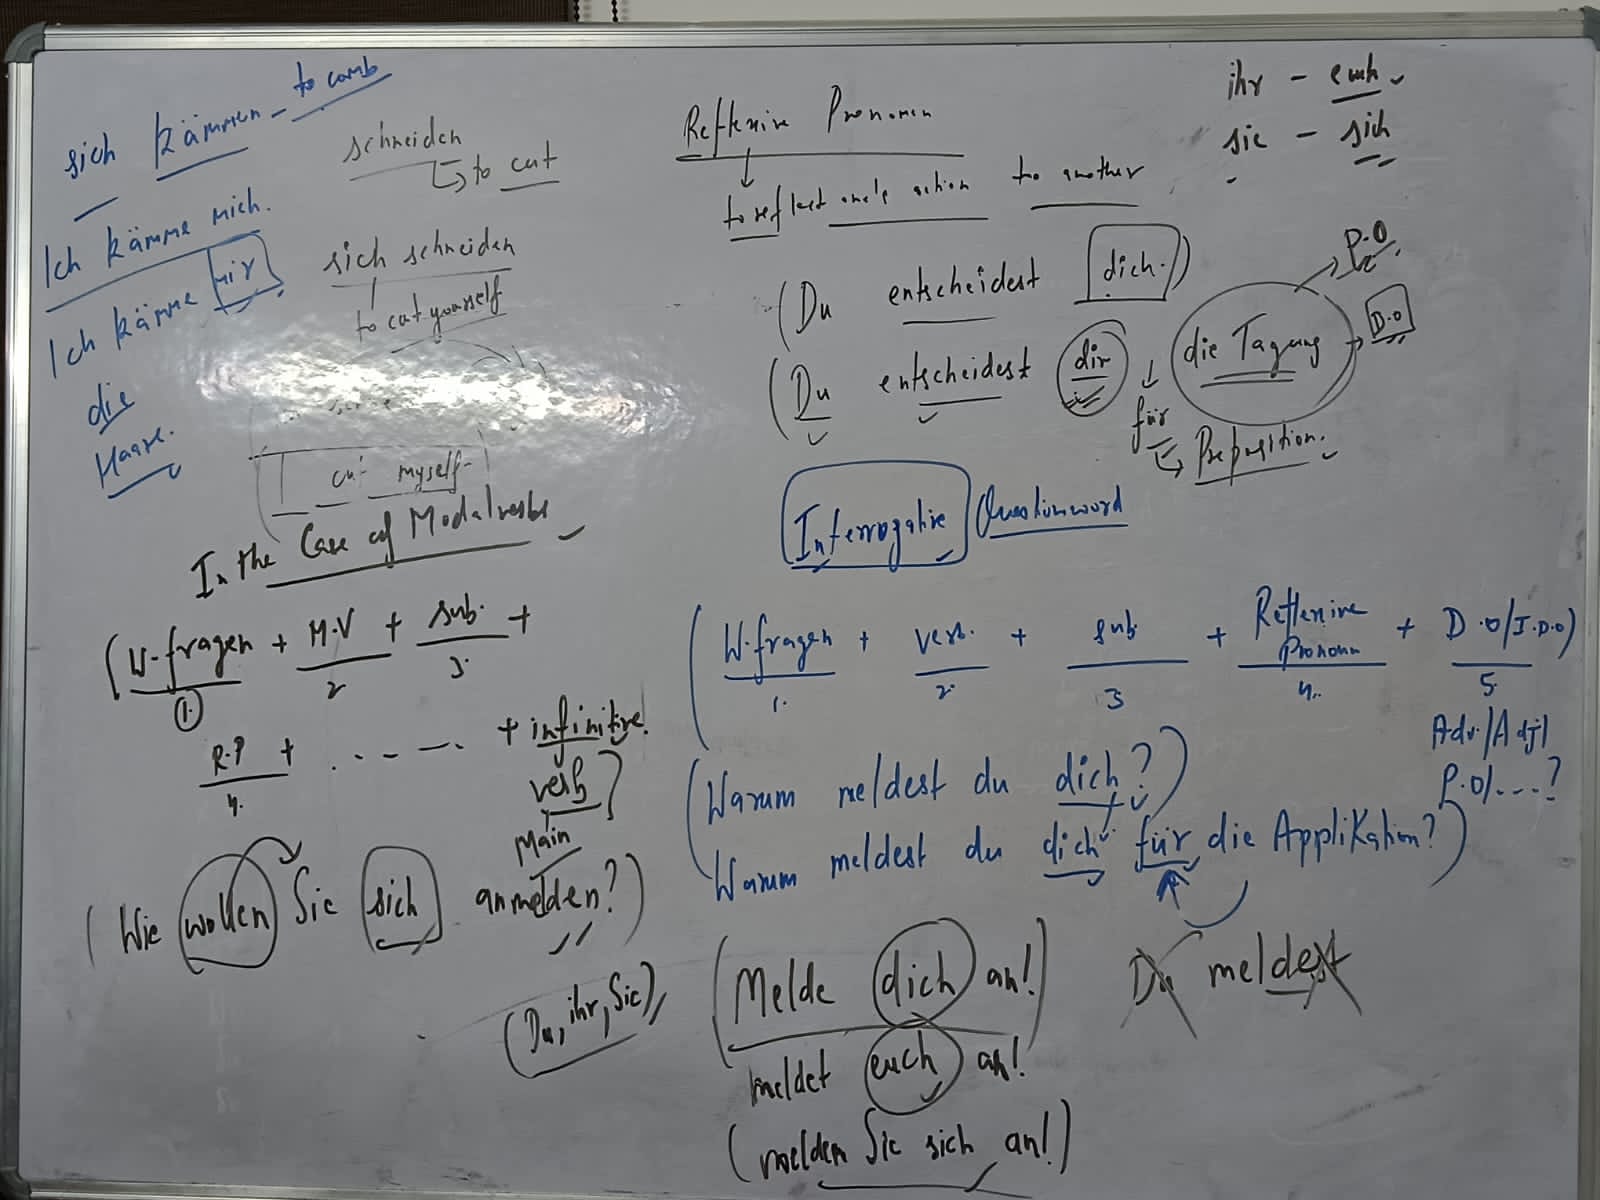 sich kämmen - to comb
Ich kämme mich.
Ich kämme mir
die
Haare.
schneiden
↳ to cut
sich schneiden
to cut yourself
I cut myself-
Reflexive Pronomen
to reflect one's action to another
ihr - euch
sie - sich
(Du entscheidest dich.)
(Du entscheidest dir die Tagung
P.O
D.O
für
↳ Preposition.
Interrogative Questionword
In the Case of Modalverbs
(W-fragen + M.V + sub. +
1. 2 3.
R.P + . - - - . + infinitive
4.
verb)
Main
(Wie wollen Sie sich anmelden?)
(W-fragen + verb. + sub + Reflexive Pronoun + D.O/I.D.O)
1. 2. 3 4. 5.
Adv./Adj/
P.O/....?
(Warum meldest du dich?)
(Warum meldest du dich für die Applikation?)
(Du, ihr, Sie)
(Melde dich an!)
Du meldest
meldet euch an!
(melden Sie sich an!)